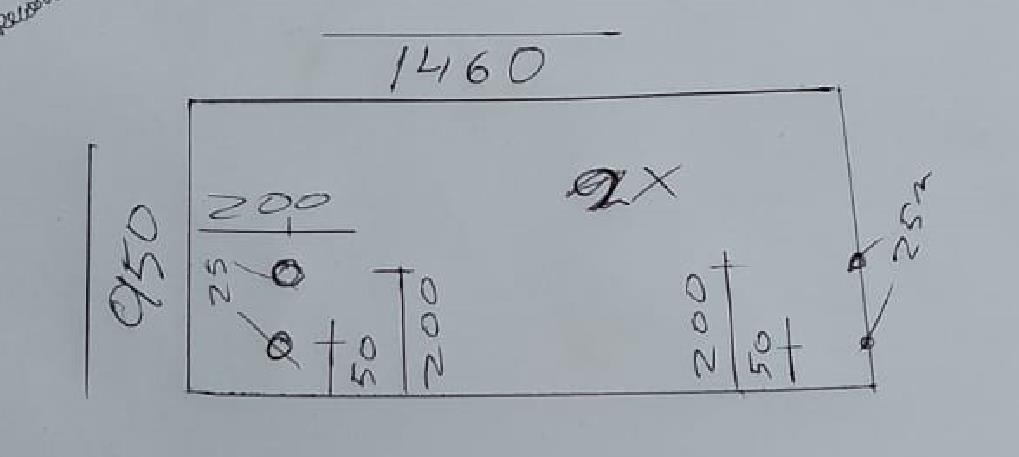 1460
2X
200
950
25
25
200
200
50
50